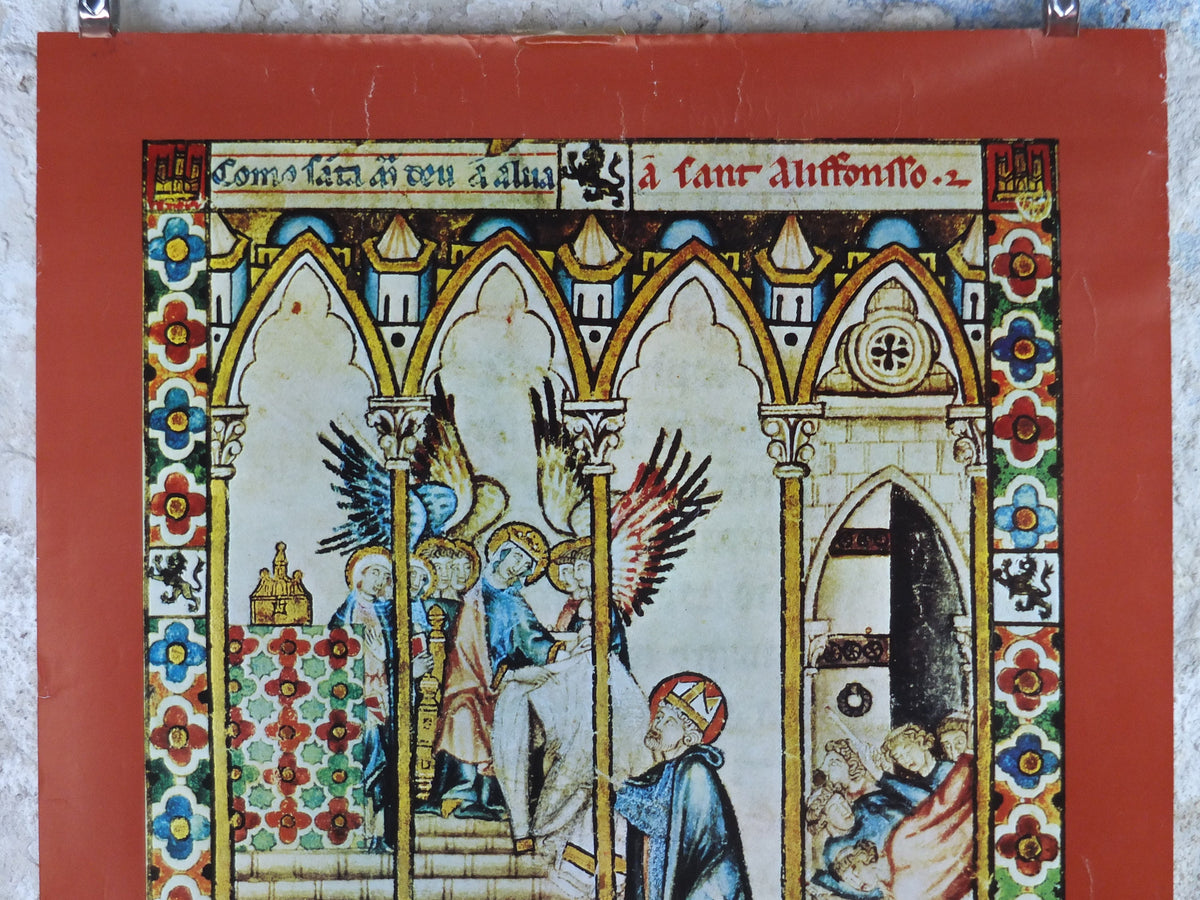 Como sãta m̃ deu ã alua ã sant Aliffonsso · 2